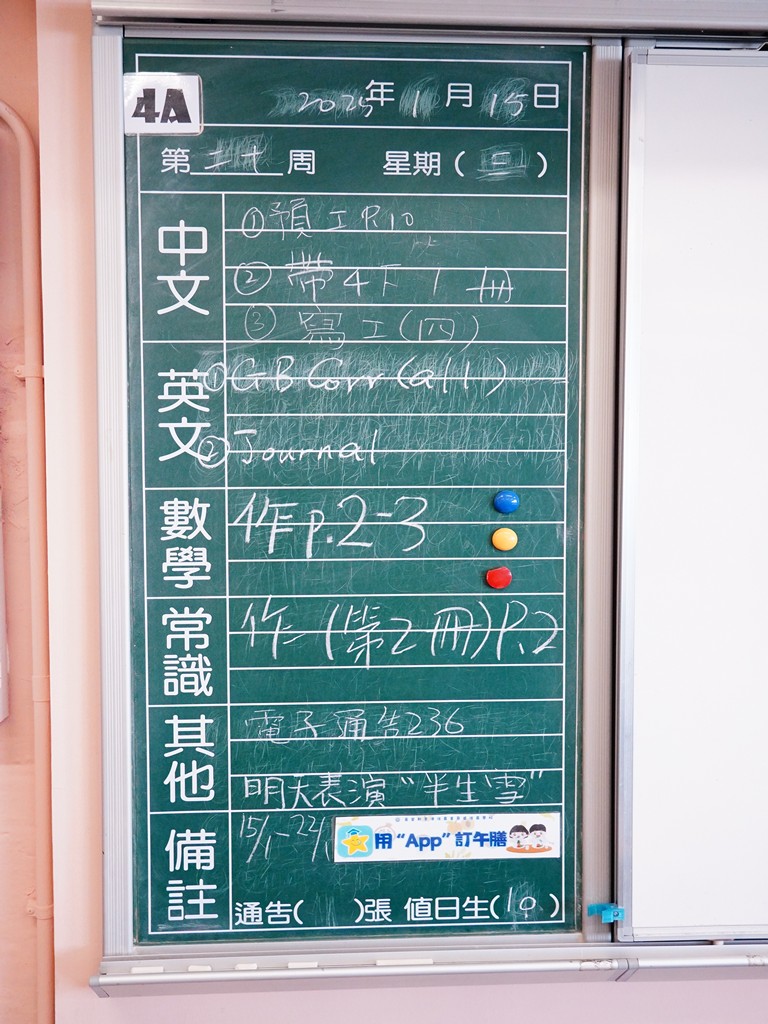 4A
2025年1月15日
第二十周 星期(三)
中文
①預工P.10
②帶4下1冊
③寫工(四)
英文
①GB Corr(all)
②Journal
數學
作p.2-3
常識
作(第2冊)P.2
其他
電子通告236
明天表演"半生雪"
備註
15/1-22/1
用"App"訂午膳
通告( )張 值日生(10)